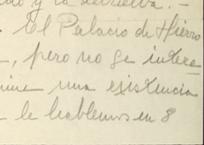 y la
. El Palacio de Hierro
, pero no se intere
una existencia
le hablemos en 8